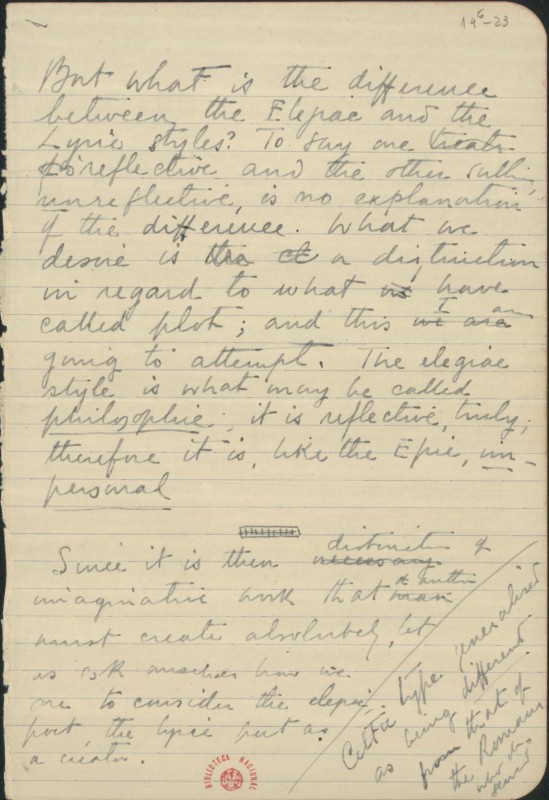 14⁶-23
But what is the difference
between the Elegiac and the
Lyric styles? To say one
is reflective and the other
unreflective, is no explanation
of the difference. What we
desire is the a distinction
in regard to what I have
called plot; and this we are I am
going to attempt. The elegiac
style is what may be called
philosophic; it is reflective, truly;
therefore it is, like the Epic, im-
personal
Since it is then necessary distinctive of
imaginative work that man the author
must create absolutely, let
us ask ourselves how we
are to consider the elegiac
poet, the lyric poet as
a creator.
Celtic type generalised
as being different
from that of
the Romans
who de-
BIBLIOTECA NACIONAL